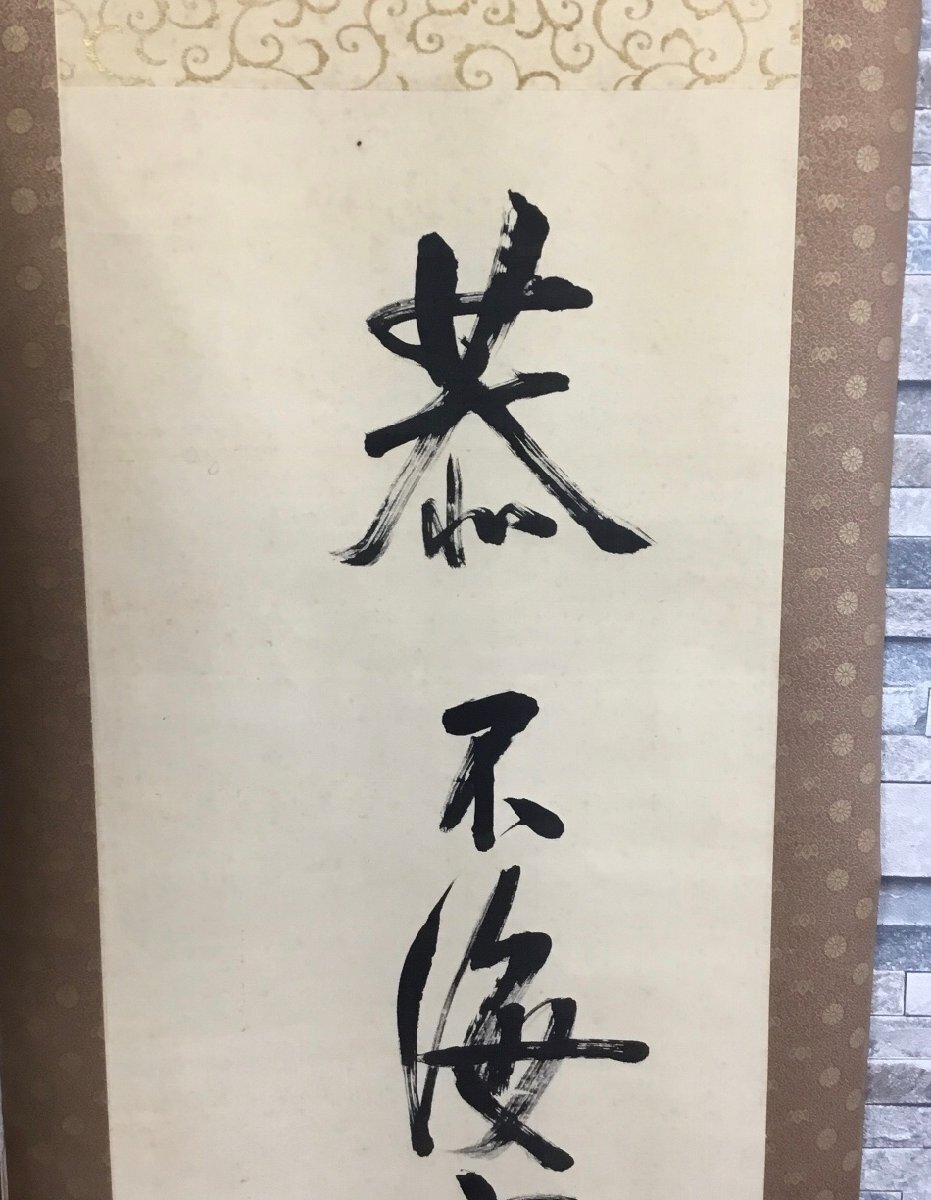 恭不侮